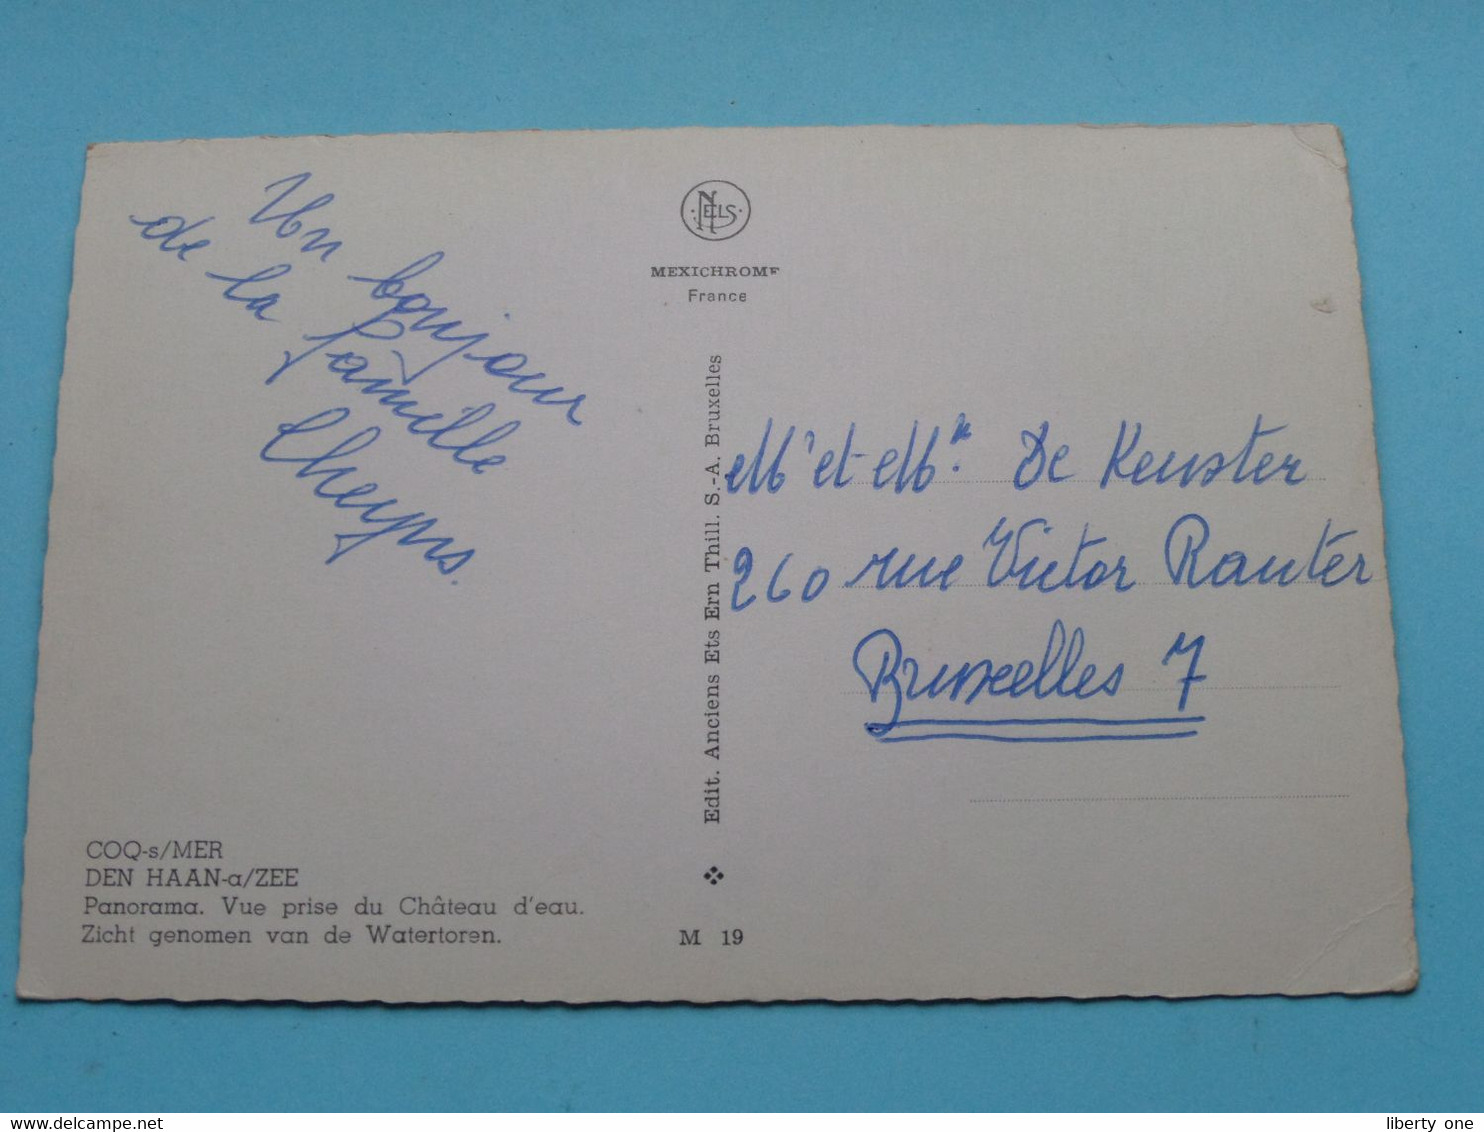 Un bonjour
de la famille
Cheyns.
NELS
MEXICHROME
France
Edit. Anciens Ets Ern Thill. S.-A. Bruxelles
Mr et Mme. De Keuster
260 rue Victor Rauter
Bruxelles 7
COQ-s/MER
DEN HAAN-a/ZEE
Panorama. Vue prise du Château d'eau.
Zicht genomen van de Watertoren.
M 19
liberty one